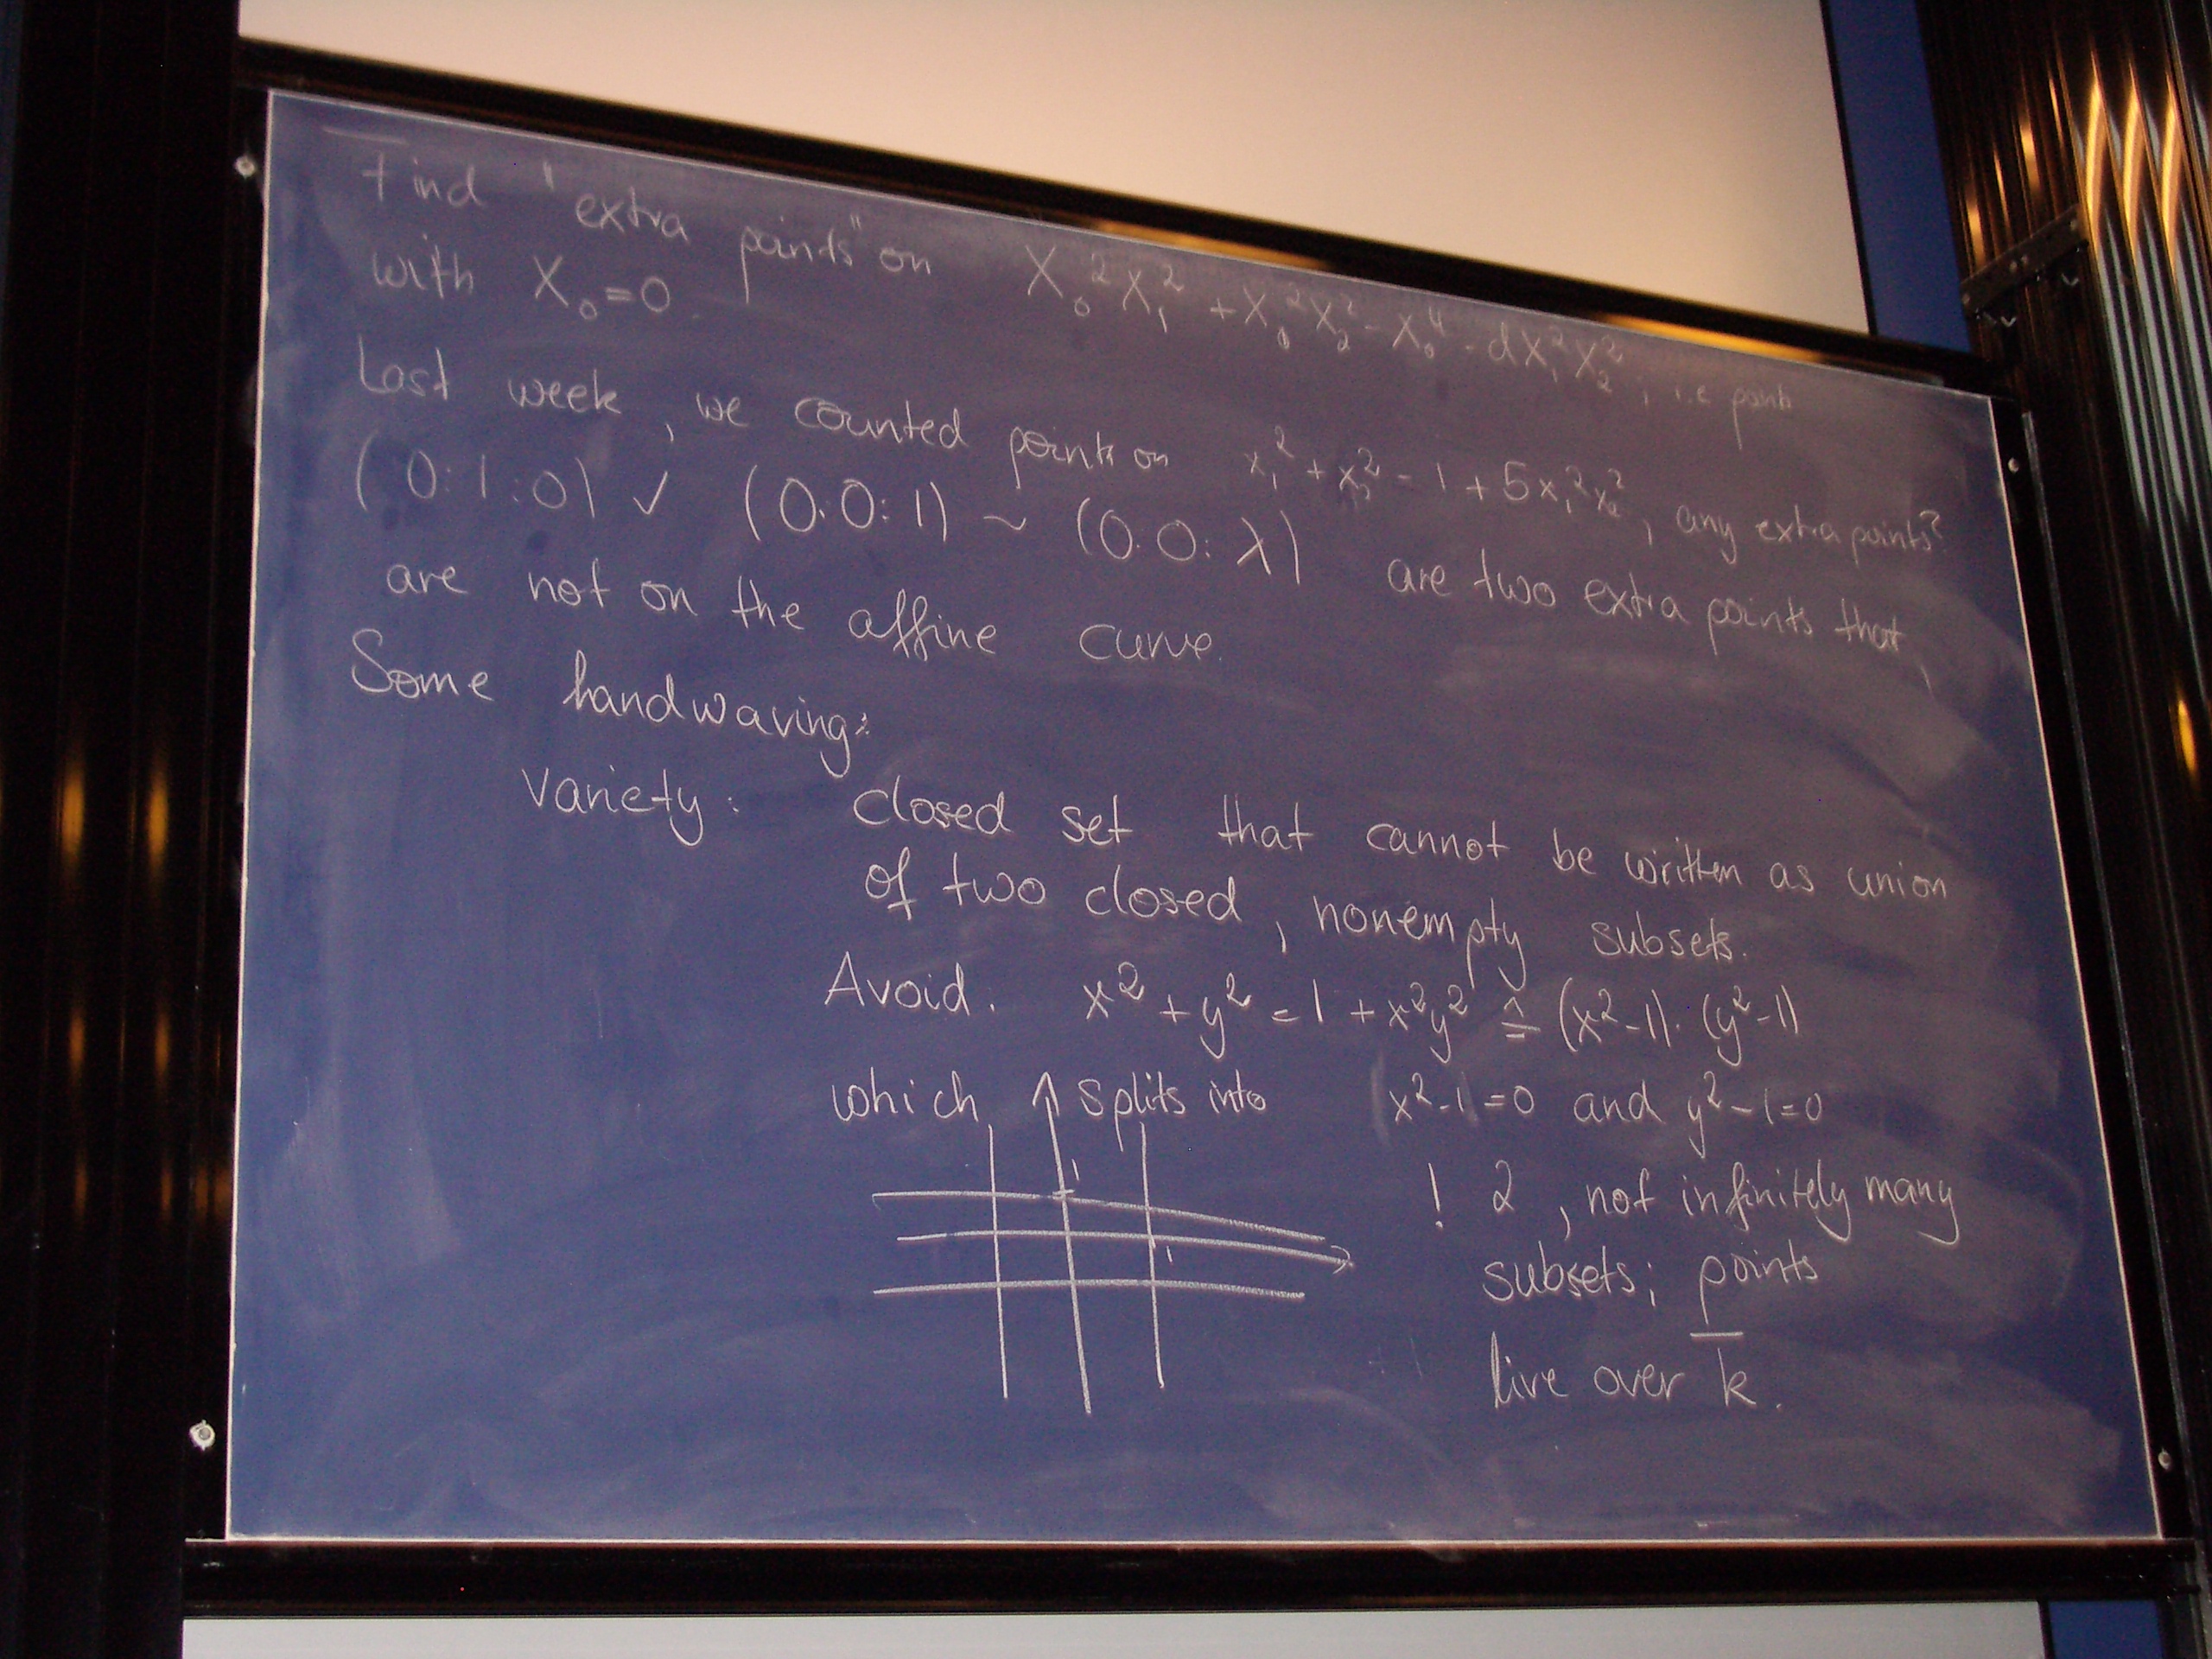 Find "extra points" on X₀²X₁² + X₀²X₂² - X₀⁴ - dX₁²X₂², i.e points
with X₀=0.
Last week, we counted points on x₁² + x₂² - 1 + 5x₁²x₂², any extra points?
(0:1:0) ✓ (0:0:1) ~ (0:0:λ) are two extra points that
are not on the affine curve.
Some handwaving:
variety: closed set that cannot be written as union
of two closed, nonempty subsets.
Avoid. x² + y² = 1 + x²y² ≙ (x²-1)·(y²-1)
which splits into x²-1=0 and y²-1=0
1
1
! 2, not infinitely many
subsets; points
live over k̅.